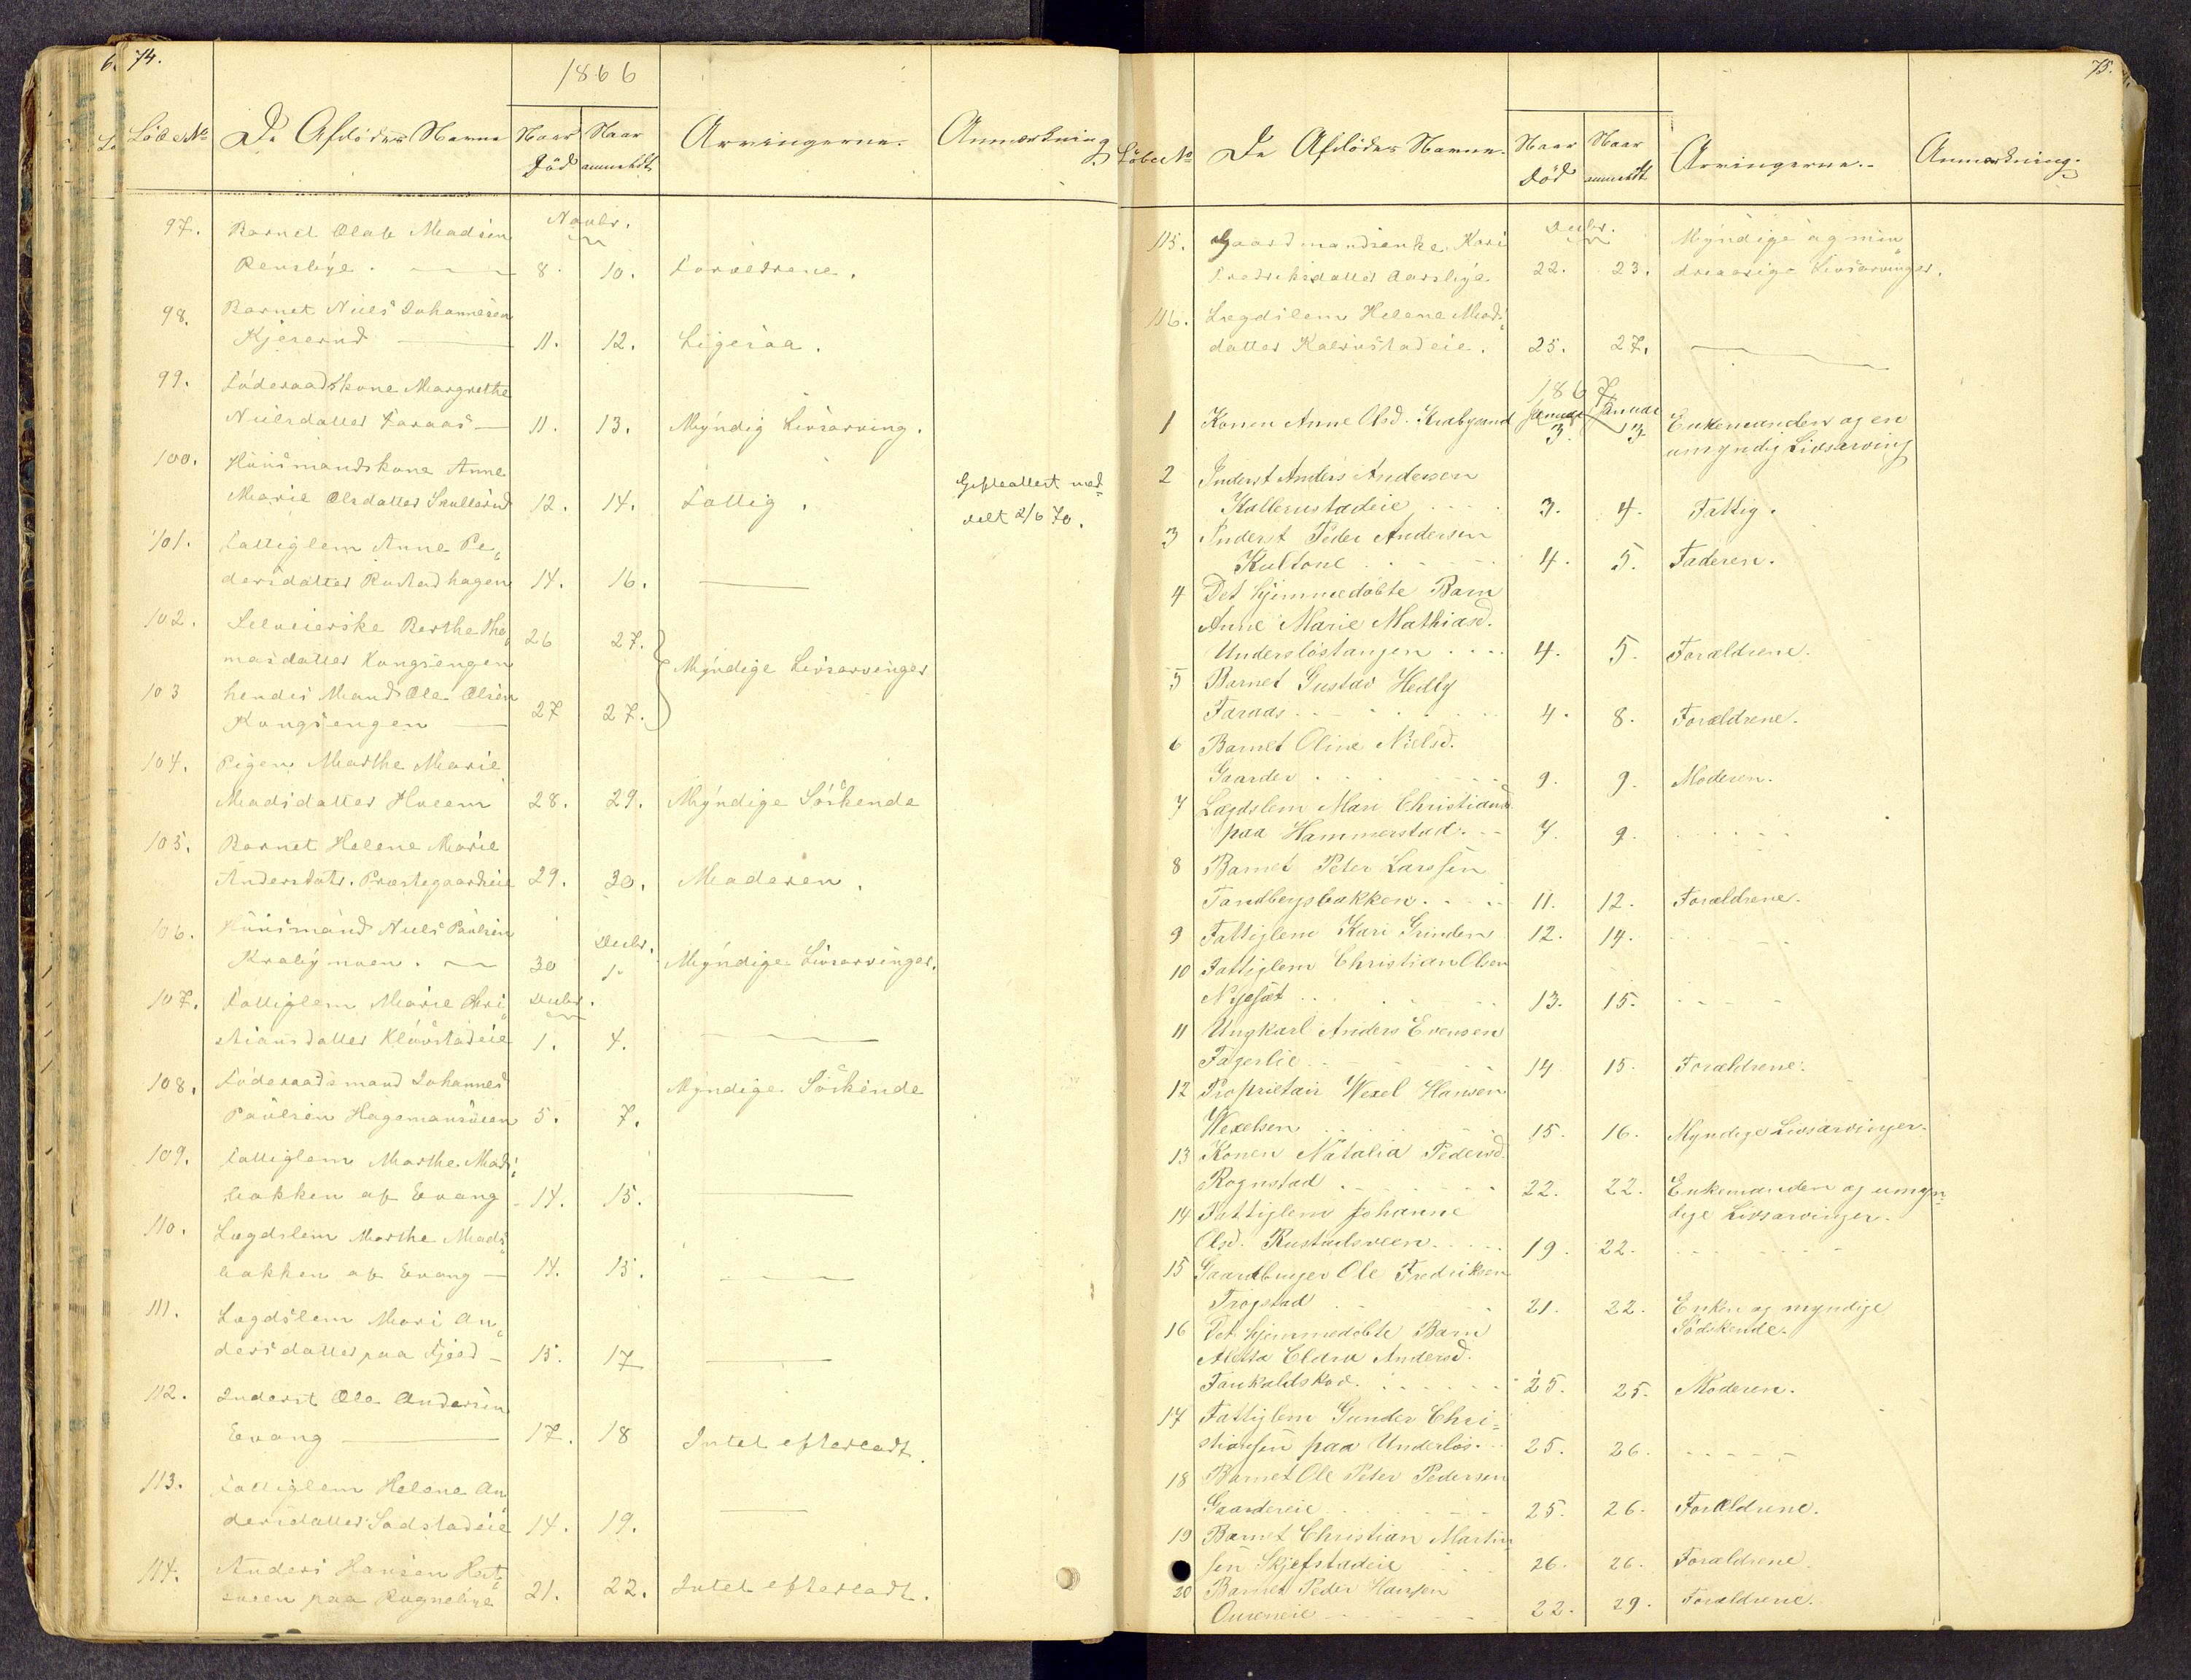 74.
1866
Löbe No De Afdödes Navne Naar Död Naar anmeldt Arvingerne. Anmærkning
Novbr.
97. Barnet Olaf Madsen
Renslye. 8. 10. Forældrene.
98. Barnet Niels Johannesen
Kjeserud 11. 12. Ligesaa.
99. Föderaadskone Margrethe
Nielsdatter Faraas 11. 13. Myndig Livsarving.
100. Huusmandskone Anne
Marie Olsdatter Skullerud 12. 14. Fattig. Skifteattest med-
delt 2/6 70.
101. Fattiglem Anne Pe„
dersdatter Rustadhagen 14. 16. —
102. Selveierske Berthe Tho„ 26 27.
masdatter Kongsengen Myndige Livsarvinger
103 hendes Mand Ole Olsen
Kongsengen 27 27.
104. Pigen Marthe Marie
Madsdatter Hveem 28. 29. Myndige Söskende
105. Barnet Helene Marie
Andersdatr. Præstegaardseie 29. 30. Moderen.
106. Huusmand Niels Paulsen Decbr.
Krabymoen. 30 1. Myndige Livsarvinger.
107. Fattiglem Marie Chri„ Decbr.
stiansdatter Kløvstadeie 1. 4. —
108. Föderaadsmand Johannes Myndige Söskende
Paulsen Hagemansveen 5. 7.
109. Fattiglem Marthe Mads„
bakken af Evang 14. 15. —
110. Lægdslem Marthe Mads„
bakken af Evang — 14. 15. —
111. Lægdslem Mari An„
dersdatter paa Njøs 15. 17 —
112. Inderst Ole Andersen
Evang 17. 18 Intet efterladt.
113. Fattiglem Helene An„
dersdatter Sodstadeie 14. 19. —
114. Anders Hansen
paa Rognelien 21. 22. Intet efterladt.
75.
Löbe No De Afdödes Navne. Naar Död Naar anmeldt Arvingerne. Anmærkning.
Decbr.
115. Gaardmandsenke Kari Myndige og min„
Fredriksdatter Aarslye 22. 23. dreaarige Livsarvinger.
116. Lægdslem Helene Mads„
datter Kalrustadeie. 25. 27. —
1867
1 Konen Anne Olsd. Krabysand Januar 3. Januar 3. Enkemanden og en
umyndig Livsarving
2 Inderst Anders Andersen
Kallerustadeie 3. 4. Fattig.
3 Inderst Peder Andersen
Kultone 4. 5. Faderen.
4 Det hjemmedöbte Barn
Anne Marie Mathiasd.
Underslöstangen 4. 5. Forældrene.
5 Barnet Gustav Helly
Faraas 4. 8. Forældrene.
6 Barnet Oline Nielsd.
Gaarder 9. 9. Moderen.
7 Lægdslem Mari Christiansd.
paa Hammerstad. 7. 9.
8 Barnet Peter Larssen
Sandbergsbakken 11. 12. Forældrene.
9 Fattiglem Kari Grinden 12. 14.
10 Fattiglem Christian Olsen
Nygesæt 13. 15.
11 Ungkarl Anders Evensen
Fagerlie 14 15. Forældrene.
12 Proprietair Wexel Hansen
Wexelsen 15. 16. Myndige Livsarvinger.
13 Konen Natalia Pedersd.
Rognstad 22. 22. Enkemanden og umyn-
14 Fattiglem Johanne dige Livsarvinger.
Olsd. Rustadsveen 19. 22.
15 Gaardbruger Ole Fredriksen
Trogstad 21. 22. Enken og myndige
16 Det hjemmedöbte Barn Södskende.
Aletta Clara Andersd.
Faukaldskov. 25. 25. Moderen.
17 Fattiglem Gunder Chri-
stiansen paa Underlös. 25. 26.
18 Barnet Ole Peter Pedersen
Gaardereie 25. 26. Forældrene.
19 Barnet Christian Martin-
sen Skjefstadeie 26. 26. Forældrene.
20 Barnet Peder Hansen
Aureneie 22. 29. Forældrene.